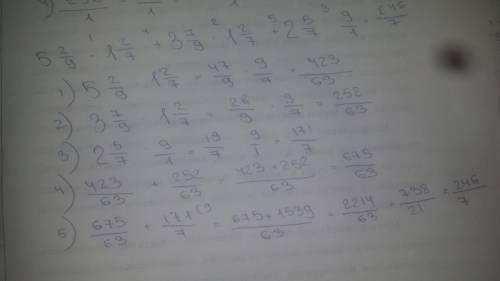 5 2/9 · 1 2/7 + 3 7/9 · 1 2/7 + 2 5/7 · 9/1 = 246/7
1) 5 2/9 · 1 2/7 = 47/9 · 9/7 = 423/63
2) 3 7/9 · 1 2/7 = 28/9 · 9/7 = 252/63
3) 2 5/7 · 9/1 = 19/7 · 9/1 = 171/7
4) 423/63 + 252/63 = 423+252/63 = 675/63
5) 675/63 + 171/7 (9 = 675+1539/63 = 2214/63 = 738/21 = 246/7